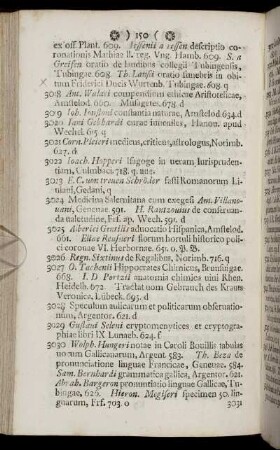 ) 150 (
ex off. Plant. 609. Jessenii a Jessen descriptio co-
ronationis Mathiæ II. reg. Ung. Hamb. 609. S. a
Greissen oratio de laudibus collegii Tubingensis,
Tubingæ. 608. Th. Lansii oratio funebris in obi-
tum Friderici Ducis Wurtenb. Tubingæ. 608. q
3018 Ant. Walæi compendium ethicæ Aristotelicæ,
Amstelod. 660. Musagetes. 678. d
3019 Joh. constantia naturæ, Amstelod. 634. d
3020 Jani Gebhardi curæ iuveniles, Hanov. apud
Wechel. 615. q
3021 Corn. Pleieri medicus, criticus, astrologus, Norimb.
627. d
3022 Joach. Hopperi isagoge in veram Jurispruden-
tiam, Culmbac. 718. q. una:
3023 E. C. von treuen Schröder fasti Romanorum Li-
viani, Gedani, q
3024 Medicina Salernitana cum exegesi Arn. Villano-
vani, Genevæ. 591. H. Ranzovius de conservan-
da valetudine, Frf. ap. Wech. 591. d
3025 Alberici Gentilis advocatio Hispanica, Amstelod.
661. Eliæ Reusneri florum hortuli historico poli-
tici coronæ VI. Herbornæ. 651. q.
3026 Regn. Sixtinus de Regalibus, Norimb. 716. q
3027 O. Tachenii Hippocrates Chimicus, Brunsvigæ.
668. I. D. Portzii anatomia chimica vini Rhen.
Heidelb. 672. Tractat vom Gebrauch des Krauts
Veronica, Lübeck. 695. d
3028 Speculum aulicarum et politicarum observatio-
num, Argentor. 621. d
3029 Gustavi Seleni cryptomenytices et cryptogra-
phiæ libri IX. Lunæb. 624. f
3030 Wolph. Hungeri notæ in Caroli Bovillii tabulas
vocum Gallicanarum, Argent. 583. Th. Beza de
pronunciatione linguæ Francicæ, Genevæ. 584.
Sam. Bernhardi grammatica gallica, Argentor. 621.
Ab. ab. Bargeron pronuntiatio linguæ Gallicæ, Tu-
bingæ. 626. Hieron. Megiseri specimen 50. lin-
guarum, Frf. 703. o
3031